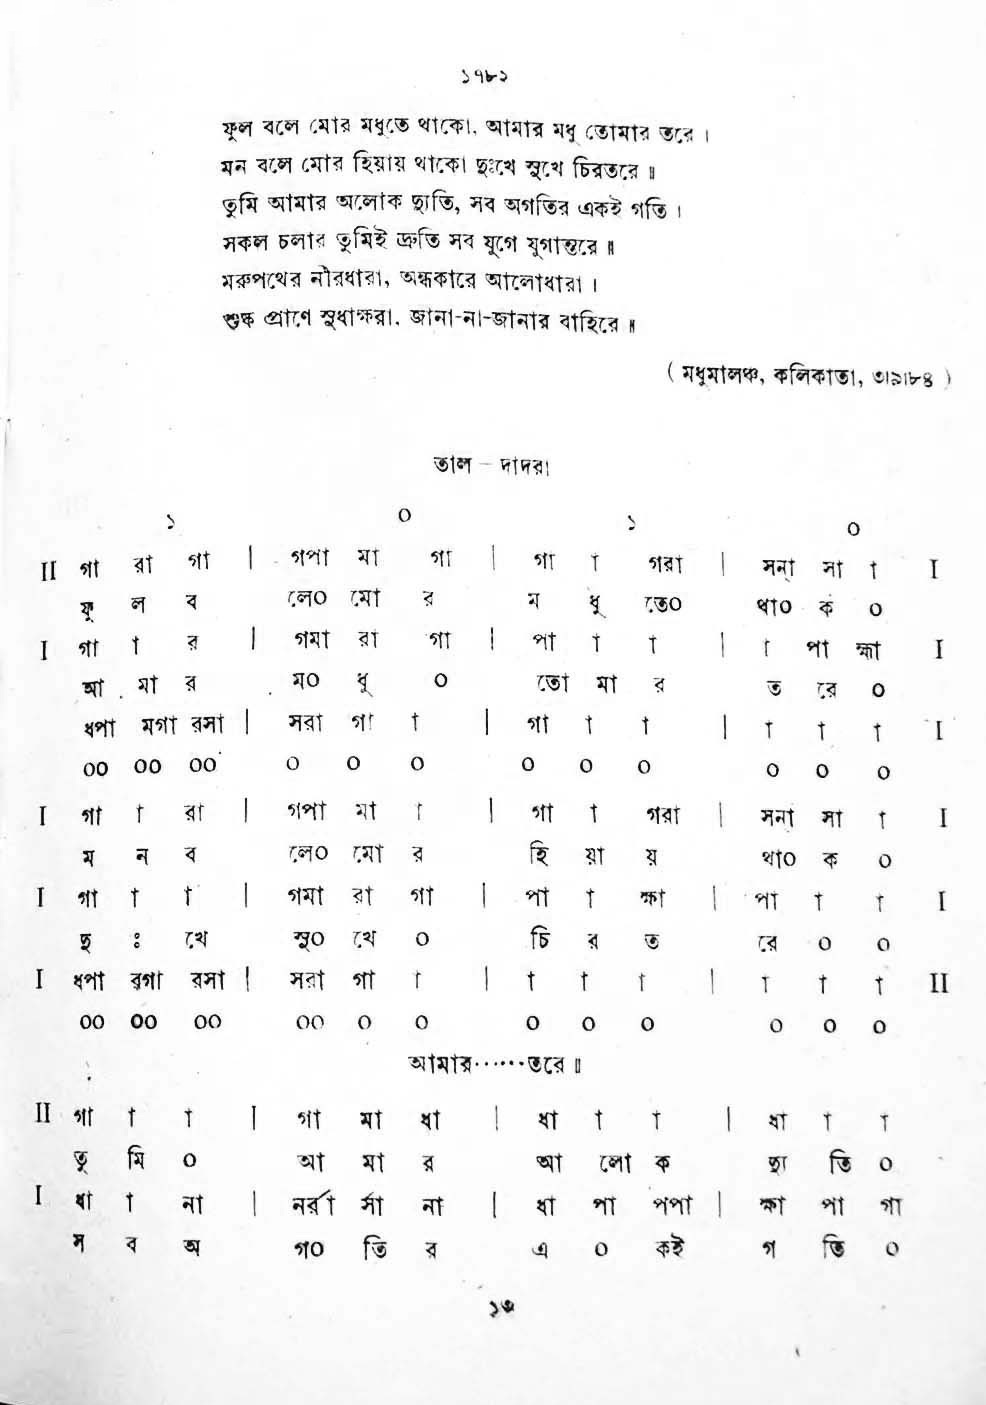 ১৭৮২
ফুল বলে মোর মধুতে থাকো, আমার মধু তোমার তরে ।
মন বলে মোর হিয়ায় থাকো দুঃখে সুখে চিরতরে ॥
তুমি আমার অলোক দ্যুতি, সব অগতির একই গতি ।
সকল চলার তুমিই দ্রুতি সব যুগে যুগান্তরে ॥
মরুপথের নীরধারা, অন্ধকারে আলোধারা ।
শুষ্ক প্রাণে সুধাক্ষরা, জানা-না-জানার বাহিরে ॥
( মধুমালঞ্চ, কলিকাতা, ৩৷৯৷৮৪ )
তাল – দাদরা
১ ০ ১ ০
II গা রা গা | গপা মা গা | গা া গরা | সন্া সা া I
ফু ল ব লে০ মো র ম ধু তে০ থা০ ক ০
I গা া র | গমা রা গা | পা া া | া পা হ্মা I
আ মা র ম০ ধু ০ তো মা র ত রে ০
ধপা মগা রসা | সরা গা া | গা া া | া া া I
০০ ০০ ০০ ০ ০ ০ ০ ০ ০ ০ ০ ০
I গা া রা | গপা মা া | গা া গরা | সন্া সা া I
ম ন ব লে০ মো র হি য়া য় থা০ ক ০
I গা া া | গমা রা গা | পা া ক্ষা | পা া া I
দু ঃ খে সু০ খে ০ চি র ত রে ০ ০
I ধপা রগা রসা | সরা গা া | া া া | া া া II
০০ ০০ ০০ ০০ ০ ০ ০ ০ ০ ০ ০ ০
আমার······তরে ॥
II গা া া | গা মা ধা | ধা া া | ধা া া
তু মি ০ আ মা র আ লো ক দ্যু তি ০
I ধা া না | নর্রা র্সা না | ধা পা পপা | ক্ষা পা গা
স ব অ গ০ তি র এ ০ কই গ তি ০
১৩